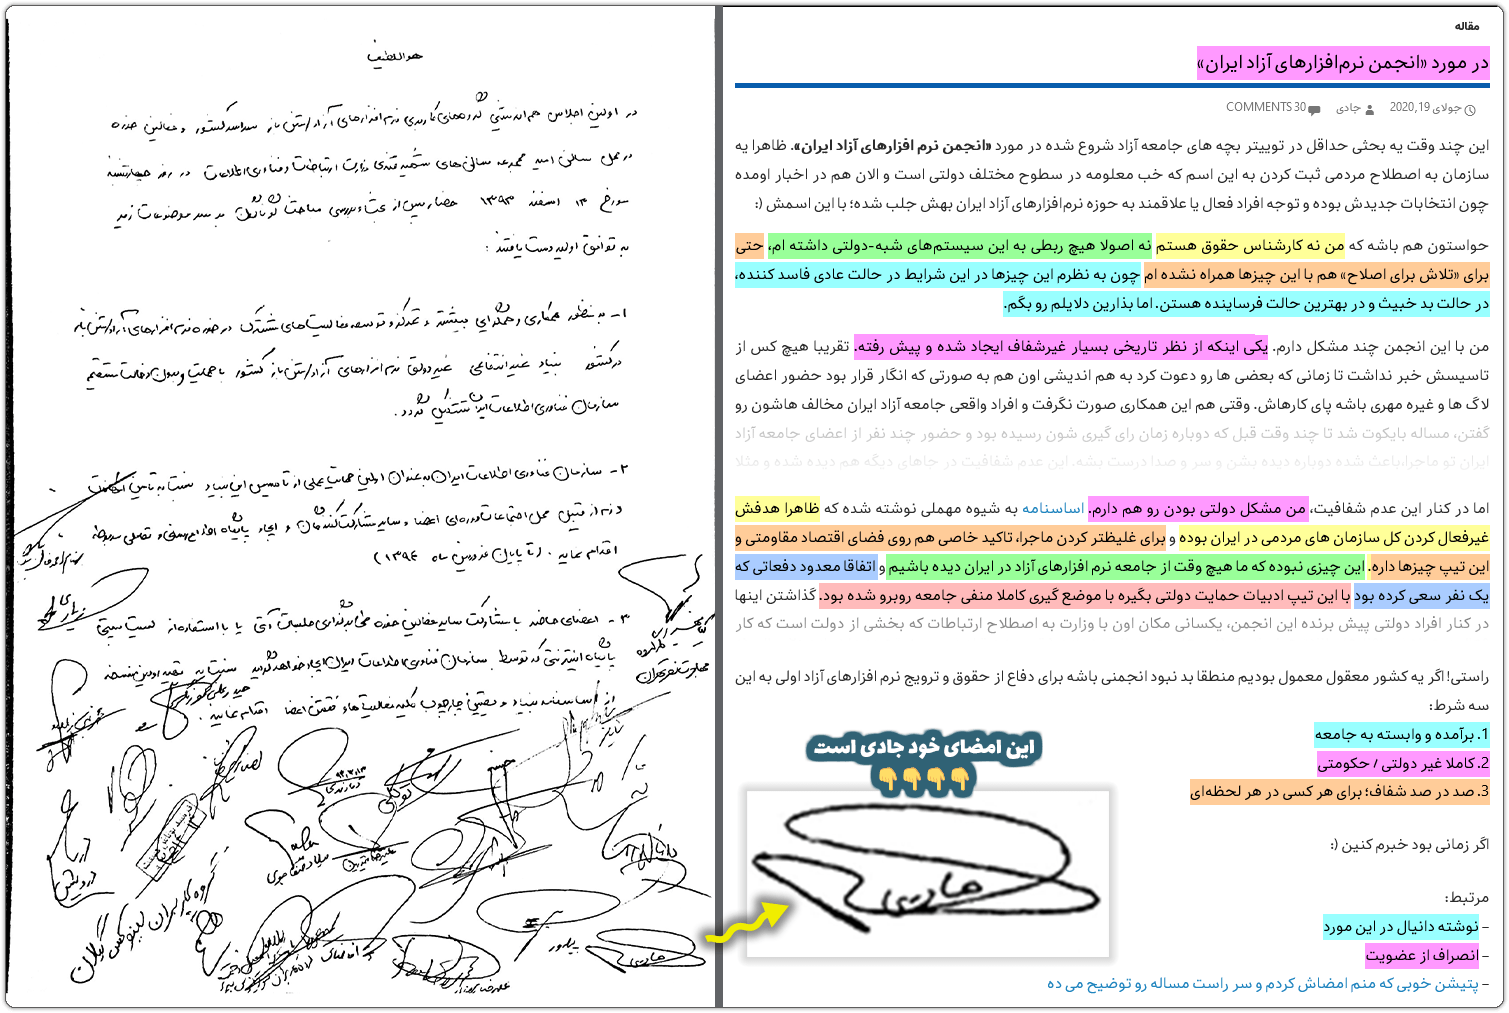 هواللطیف
در اولین اجلاس هم اندیشی گروههای کاربری نرم افزارهای آزاد/متن باز سراسر کشور و فعالین حوزه
در محل سالن امید مجموعه سالن‌های شهید قندی وزارت ارتباطات و فناوری اطلاعات در روز چهارشنبه
مورخ ۱۳ اسفند ۱۳۹۳ حضار پس از بحث و بررسی مباحث گوناگون بر سر موضوعات زیر
به توافق اولیه دست یافتند :
۱- به منظور همکاری و همگرایی بیشتر و تمرکز و توسعه فعالیت‌های مشترک در حوزه نرم افزارهای آزاد/متن باز
در کشور بنیاد غیر انتفاعی غیر دولتی نرم افزارهای آزاد/متن باز کشور با حمایت و بدون دخالت مستقیم
سازمان فناوری اطلاعات ایران تشکیل گردد.
۲- سازمان فناوری اطلاعات ایران به عنوان اولین حمایت عملی از تاسیس این بنیاد نسبت به تامین امکانات
لازم از قبیل محل اجتماعات دوره‌ای اعضا و سایر مشارکت کنندگان و ایجاد پایگاه اطلاع رسانی و تعاملی مربوطه
اقدام نماید. (تا پایان فروردین ماه ۱۳۹۴)
۳- اعضای حاضر با مشارکت سایر فعالین حوزه طی برگذاری جلسات آتی یا با استفاده از لیست پستی
پایگاه اینترنتی که توسط سازمان فناوری اطلاعات ایران ایجاد خواهد گردید نسبت به تهیه اولین نسخه
از اساسنامه بنیاد و تعیین چارچوب کلیه فعالیت‌ها و نقش اعضا اقدام نمایند.
گروه کاربران لینوکس گیلان
درویش
جادی
مقاله
در مورد «انجمن نرم‌افزارهای آزاد ایران»
جولای 19, 2020 جادی 30 COMMENTS
این چند وقت یه بحثی حداقل در توییتر بچه های جامعه آزاد شروع شده در مورد «انجمن نرم افزارهای آزاد ایران». ظاهرا یه
سازمان به اصطلاح مردمی ثبت کردن به این اسم که خب معلومه در سطوح مختلف دولتی است و الان هم در اخبار اومده
چون انتخابات جدیدش بوده و توجه افراد فعال یا علاقمند به حوزه نرم‌افزارهای آزاد ایران بهش جلب شده؛ با این اسمش (:
حواستون هم باشه که من نه کارشناس حقوق هستم نه اصولا هیچ ربطی به این سیستم‌های شبه-دولتی داشته ام، حتی
برای «تلاش برای اصلاح» هم با این چیزها همراه نشده ام چون به نظرم این چیزها در این شرایط در حالت عادی فاسد کننده،
در حالت بد خبیث و در بهترین حالت فرساینده هستن. اما بذارین دلایلم رو بگم.
من با این انجمن چند مشکل دارم. یکی اینکه از نظر تاریخی بسیار غیرشفاف ایجاد شده و پیش رفته. تقریبا هیچ کس از
تاسیسش خبر نداشت تا زمانی که بعضی ها رو دعوت کرد به هم اندیشی اون هم به صورتی که انگار قرار بود حضور اعضای
لاگ ها و غیره مهری باشه پای کارهاش. وقتی هم این همکاری صورت نگرفت و افراد واقعی جامعه آزاد ایران مخالف هاشون رو
گفتن، مساله بایکوت شد تا چند وقت قبل که دوباره زمان رای گیری شون رسیده بود و حضور چند نفر از اعضای جامعه آزاد
ایران تو ماجرا،باعث شده دوباره دیده بشن و سر و صدا درست بشه. این عدم شفافیت در جاهای دیگه هم دیده شده و مثلا
اما در کنار این عدم شفافیت، من مشکل دولتی بودن رو هم دارم. اساسنامه به شیوه مهملی نوشته شده که ظاهرا هدفش
غیرفعال کردن کل سازمان های مردمی در ایران بوده و برای غلیظتر کردن ماجرا، تاکید خاصی هم روی فضای اقتصاد مقاومتی و
این تیپ چیزها داره. این چیزی نبوده که ما هیچ وقت از جامعه نرم افزارهای آزاد در ایران دیده باشیم و اتفاقا معدود دفعاتی که
یک نفر سعی کرده بود با این تیپ ادبیات حمایت دولتی بگیره با موضع گیری کاملا منفی جامعه روبرو شده بود. گذاشتن اینها
در کنار افراد دولتی پیش برنده این انجمن، یکسانی مکان اون با وزارت به اصطلاح ارتباطات که بخشی از دولت است که کار
راستی! اگر یه کشور معقول معمول بودیم منطقا بد نبود انجمنی باشه برای دفاع از حقوق و ترویج نرم افزارهای آزاد اولی به این
سه شرط:
1. برآمده و وابسته به جامعه
2. کاملا غیر دولتی / حکومتی
3. صد در صد شفاف؛ برای هر کسی در هر لحظه‌ای
این امضای خود جادی است
👇👇👇👇
جادی
اگر زمانی بود خبرم کنین (:
مرتبط:
– نوشته دانیال در این مورد
– انصراف از عضویت
– پتیشن خوبی که منم امضاش کردم و سر راست مساله رو توضیح می ده